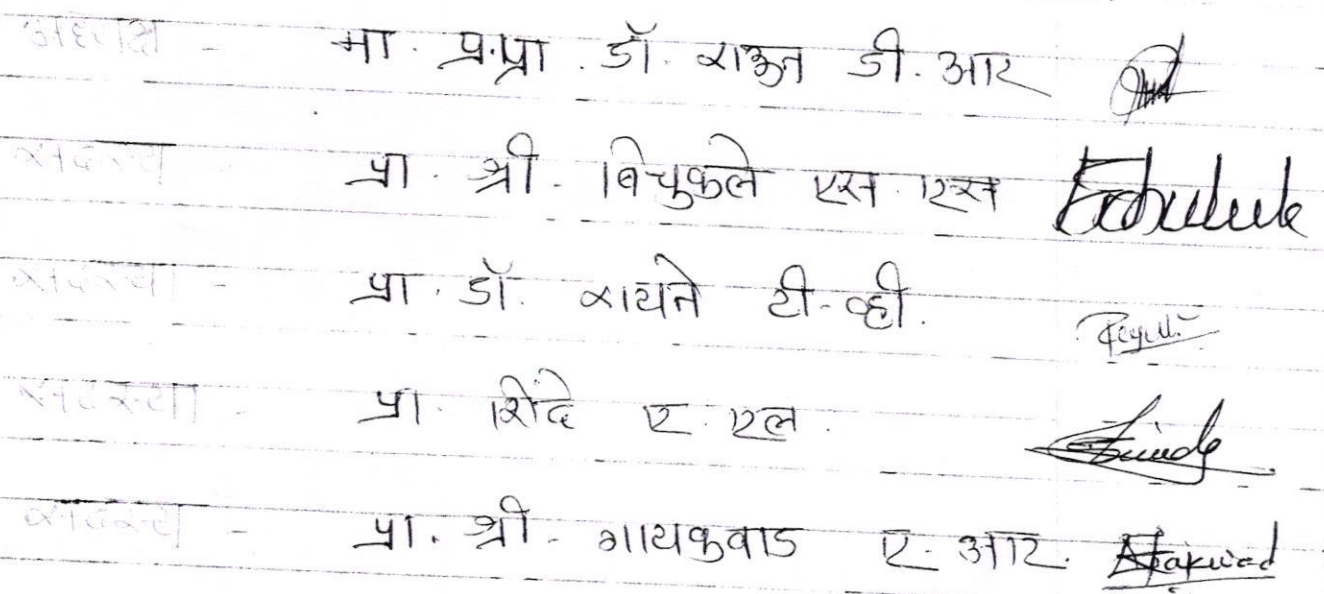 अध्यक्ष - मा. प्र.प्रा. डॉ. राऊत डी. आर
सदस्य - प्रा. श्री. बिचुकले एस. एस
सदस्या - प्रा. डॉ. रायने टी. व्ही.
सदस्या - प्रा. शिंदे ए. एल.
सदस्य - प्रा. श्री. गायकवाड ए. आर.